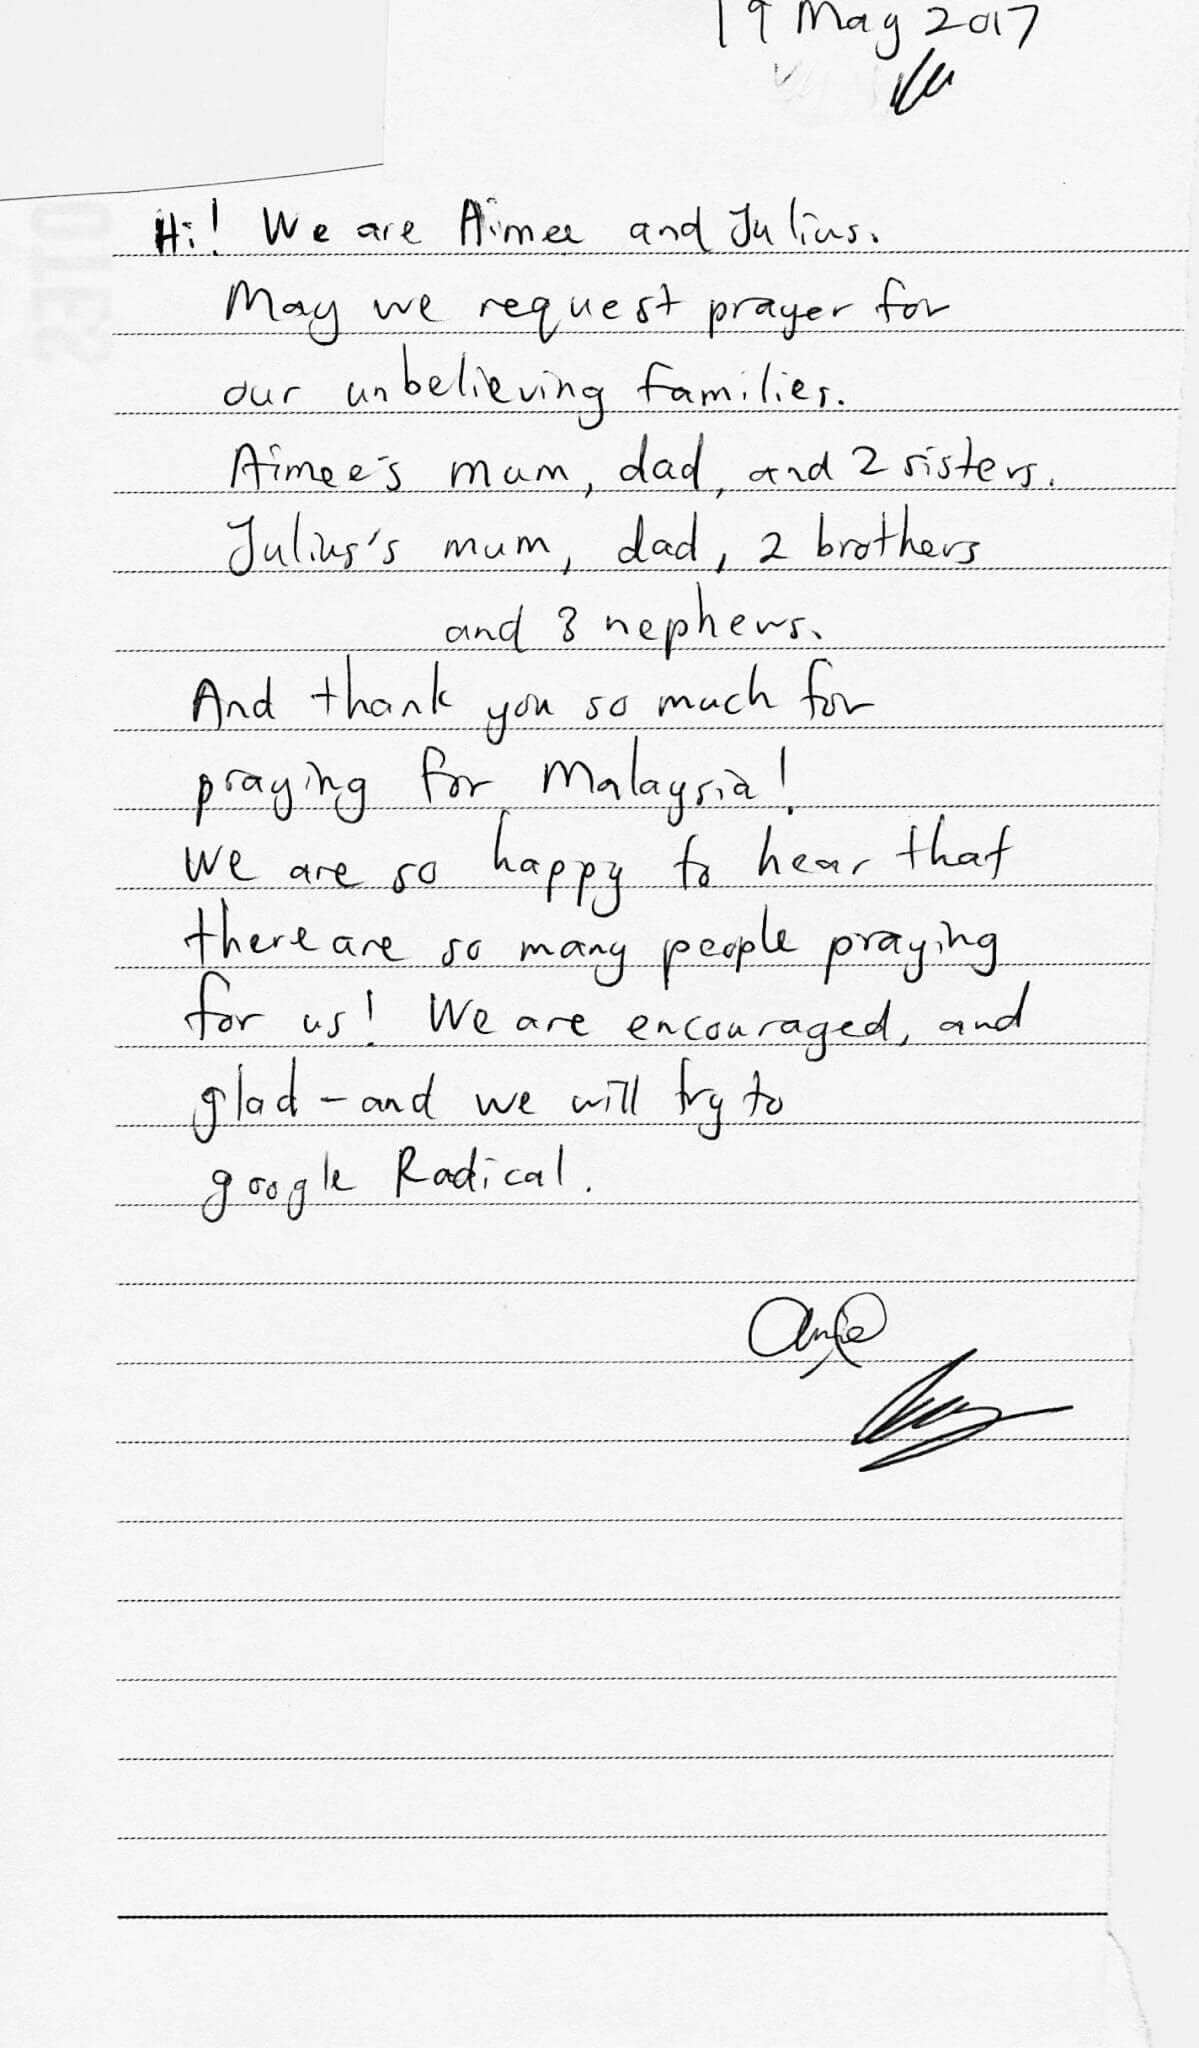 19 May 2017
Hi! We are Aimee and Julius.
May we request prayer for
our unbelieving families.
Aimee's mum, dad, and 2 sisters.
Julius's mum, dad, 2 brothers
and 3 nephews.
And thank you so much for
praying for Malaysia!
We are so happy to hear that
there are so many people praying
for us! We are encouraged, and
glad - and we will try to
google Radical.